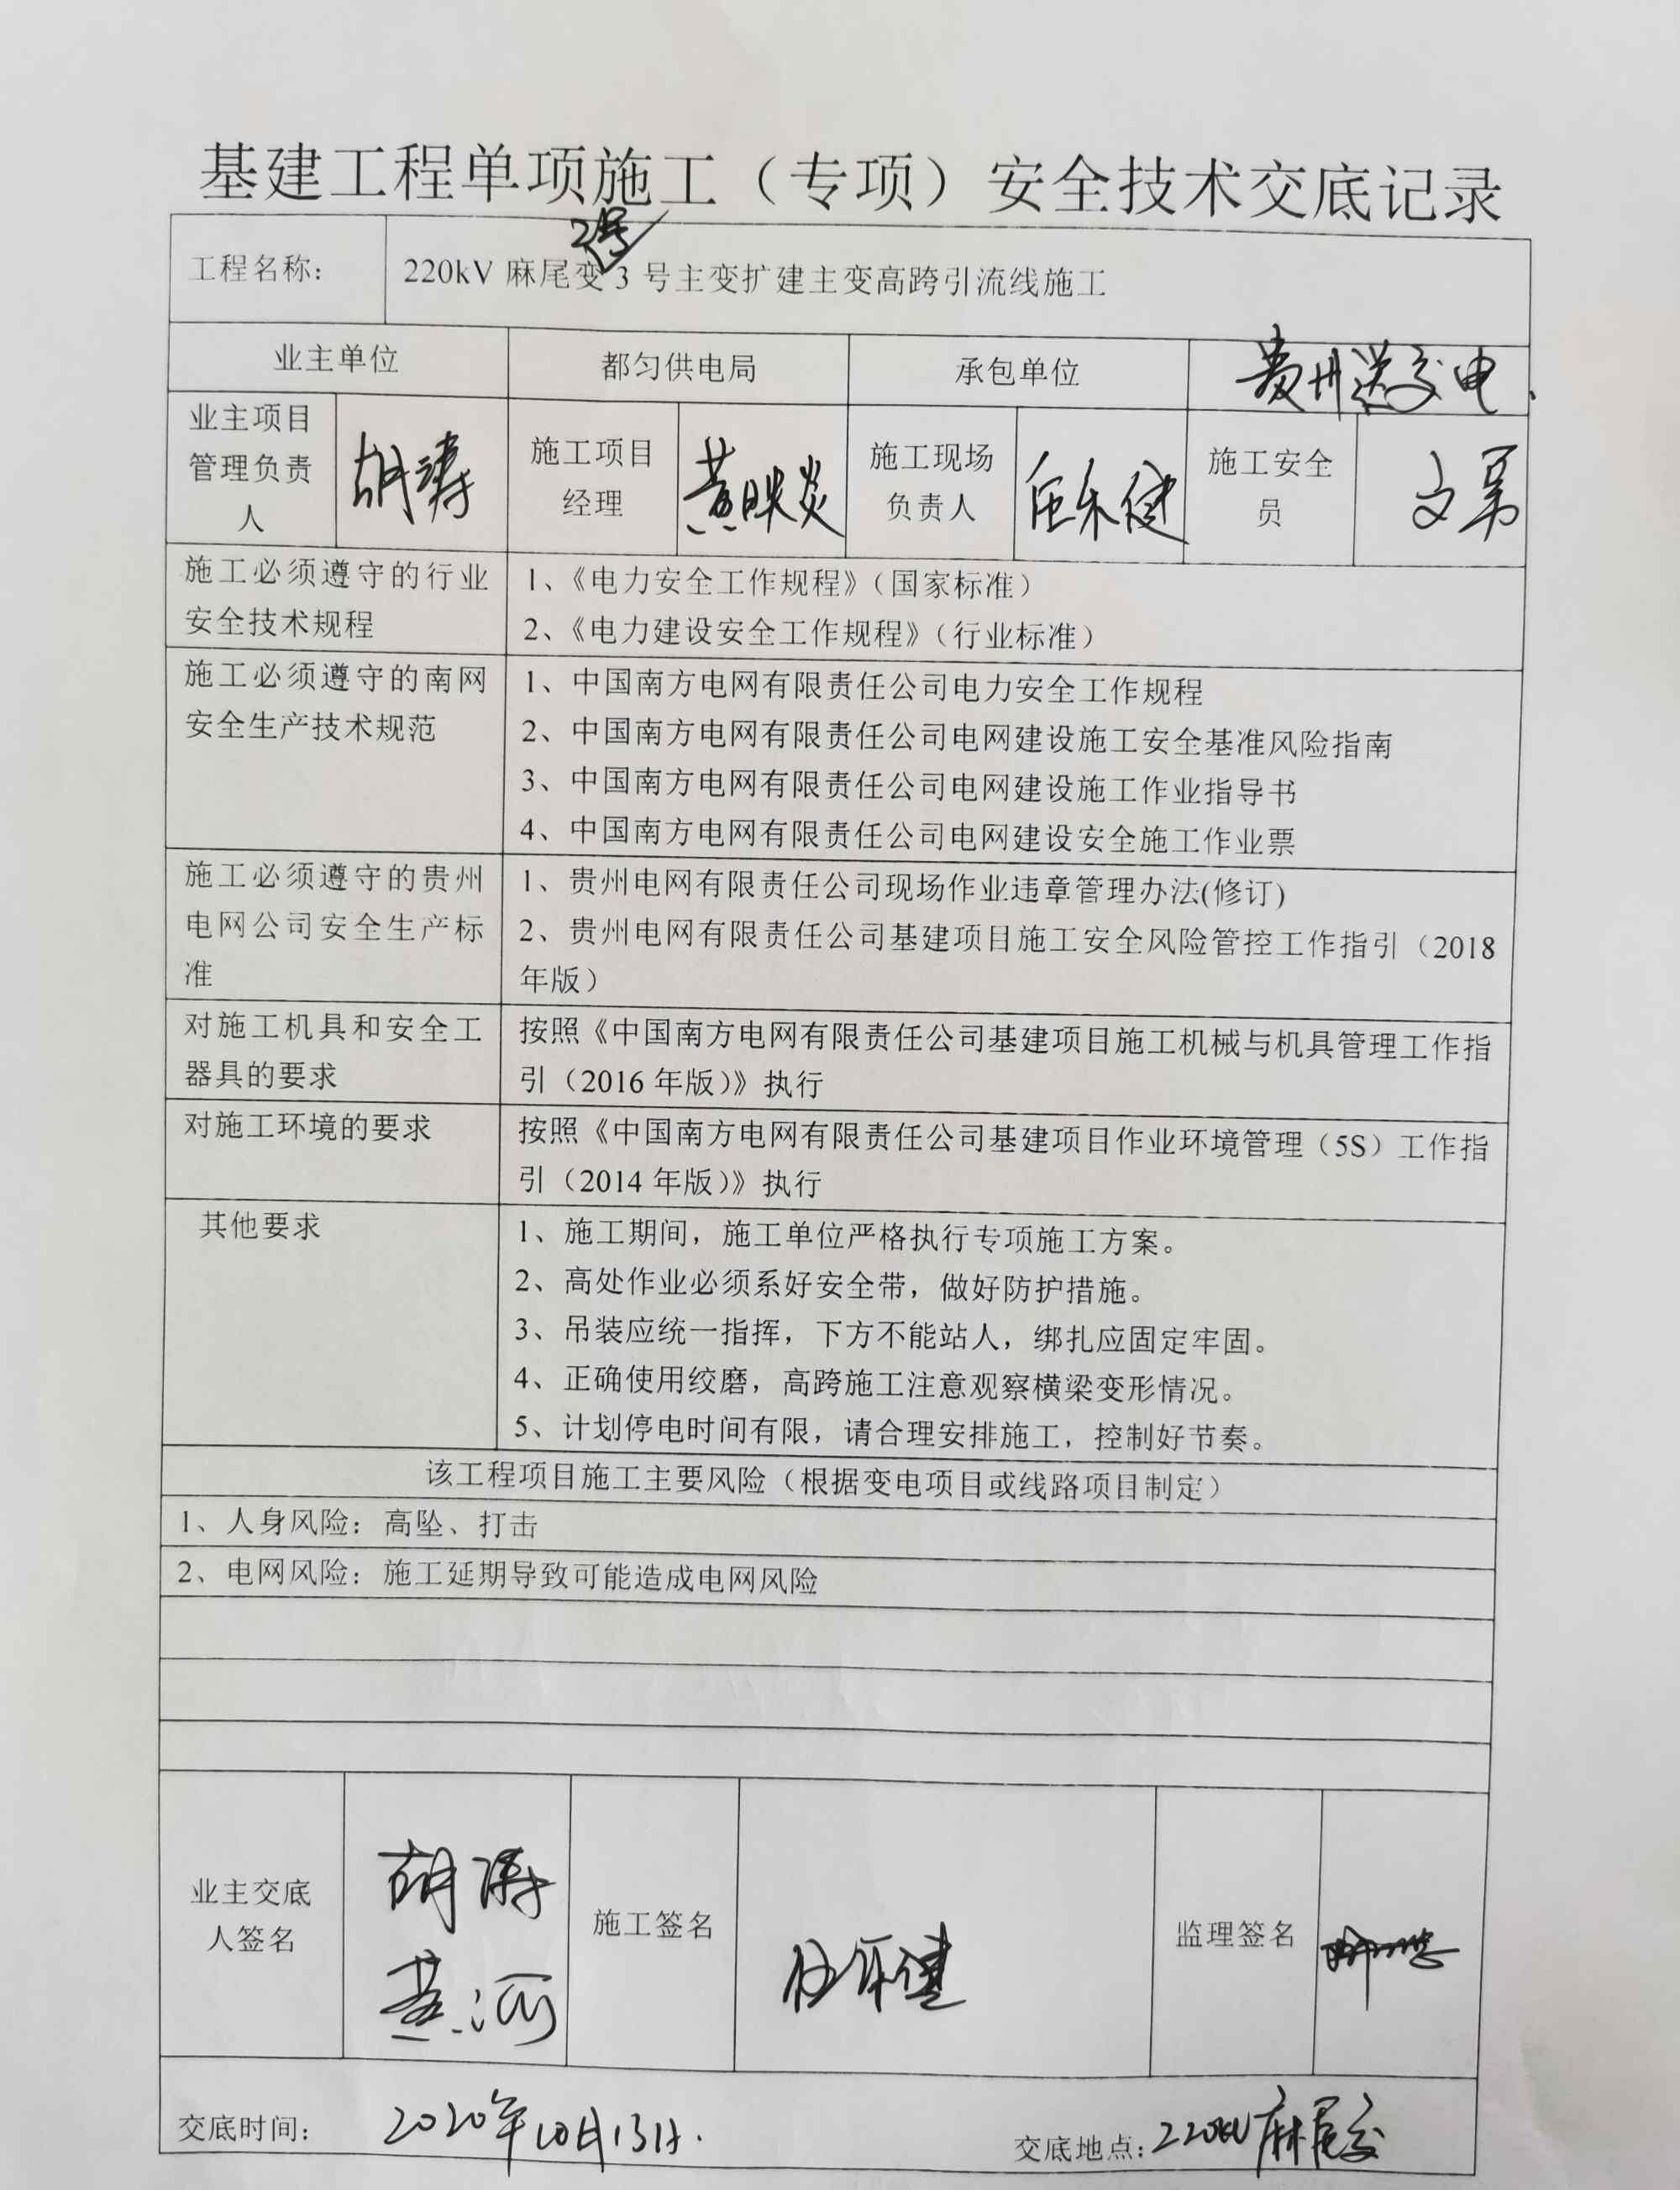 基建工程单项施工（专项）安全技术交底记录
2号
工程名称：
220kV 麻尾变 3 号主变扩建主变高跨引流线施工
业主单位
都匀供电局
承包单位
贵州送变电.
业主项目
管理负责
人
胡涛
施工项目
经理
黄映炎
施工现场
负责人
施工安全
员
文勇
施工必须遵守的行业
安全技术规程
1、《电力安全工作规程》（国家标准）
2、《电力建设安全工作规程》（行业标准）
施工必须遵守的南网
安全生产技术规范
1、中国南方电网有限责任公司电力安全工作规程
2、中国南方电网有限责任公司电网建设施工安全基准风险指南
3、中国南方电网有限责任公司电网建设施工作业指导书
4、中国南方电网有限责任公司电网建设安全施工作业票
施工必须遵守的贵州
电网公司安全生产标
准
1、贵州电网有限责任公司现场作业违章管理办法(修订)
2、贵州电网有限责任公司基建项目施工安全风险管控工作指引（2018
年版）
对施工机具和安全工
器具的要求
按照《中国南方电网有限责任公司基建项目施工机械与机具管理工作指
引（2016 年版）》执行
对施工环境的要求
按照《中国南方电网有限责任公司基建项目作业环境管理（5S）工作指
引（2014 年版）》执行
其他要求
1、施工期间，施工单位严格执行专项施工方案。
2、高处作业必须系好安全带，做好防护措施。
3、吊装应统一指挥，下方不能站人，绑扎应固定牢固。
4、正确使用绞磨，高跨施工注意观察横梁变形情况。
5、计划停电时间有限，请合理安排施工，控制好节奏。
该工程项目施工主要风险（根据变电项目或线路项目制定）
1、人身风险：高坠、打击
2、电网风险：施工延期导致可能造成电网风险
业主交底
人签名
胡涛
黄河
施工签名
监理签名
交底时间：
2020年10月13日.
交底地点：
220kV麻尾变